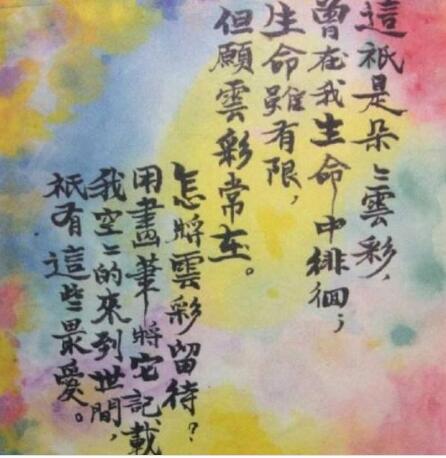 這祇是朵〻雲彩，
曾在我生命中徘徊；
生命雖有限，
但願雲彩常在。
怎將雲彩留待？
用畫筆將它記載
我空〻的來到世間，
祇有這些最愛。